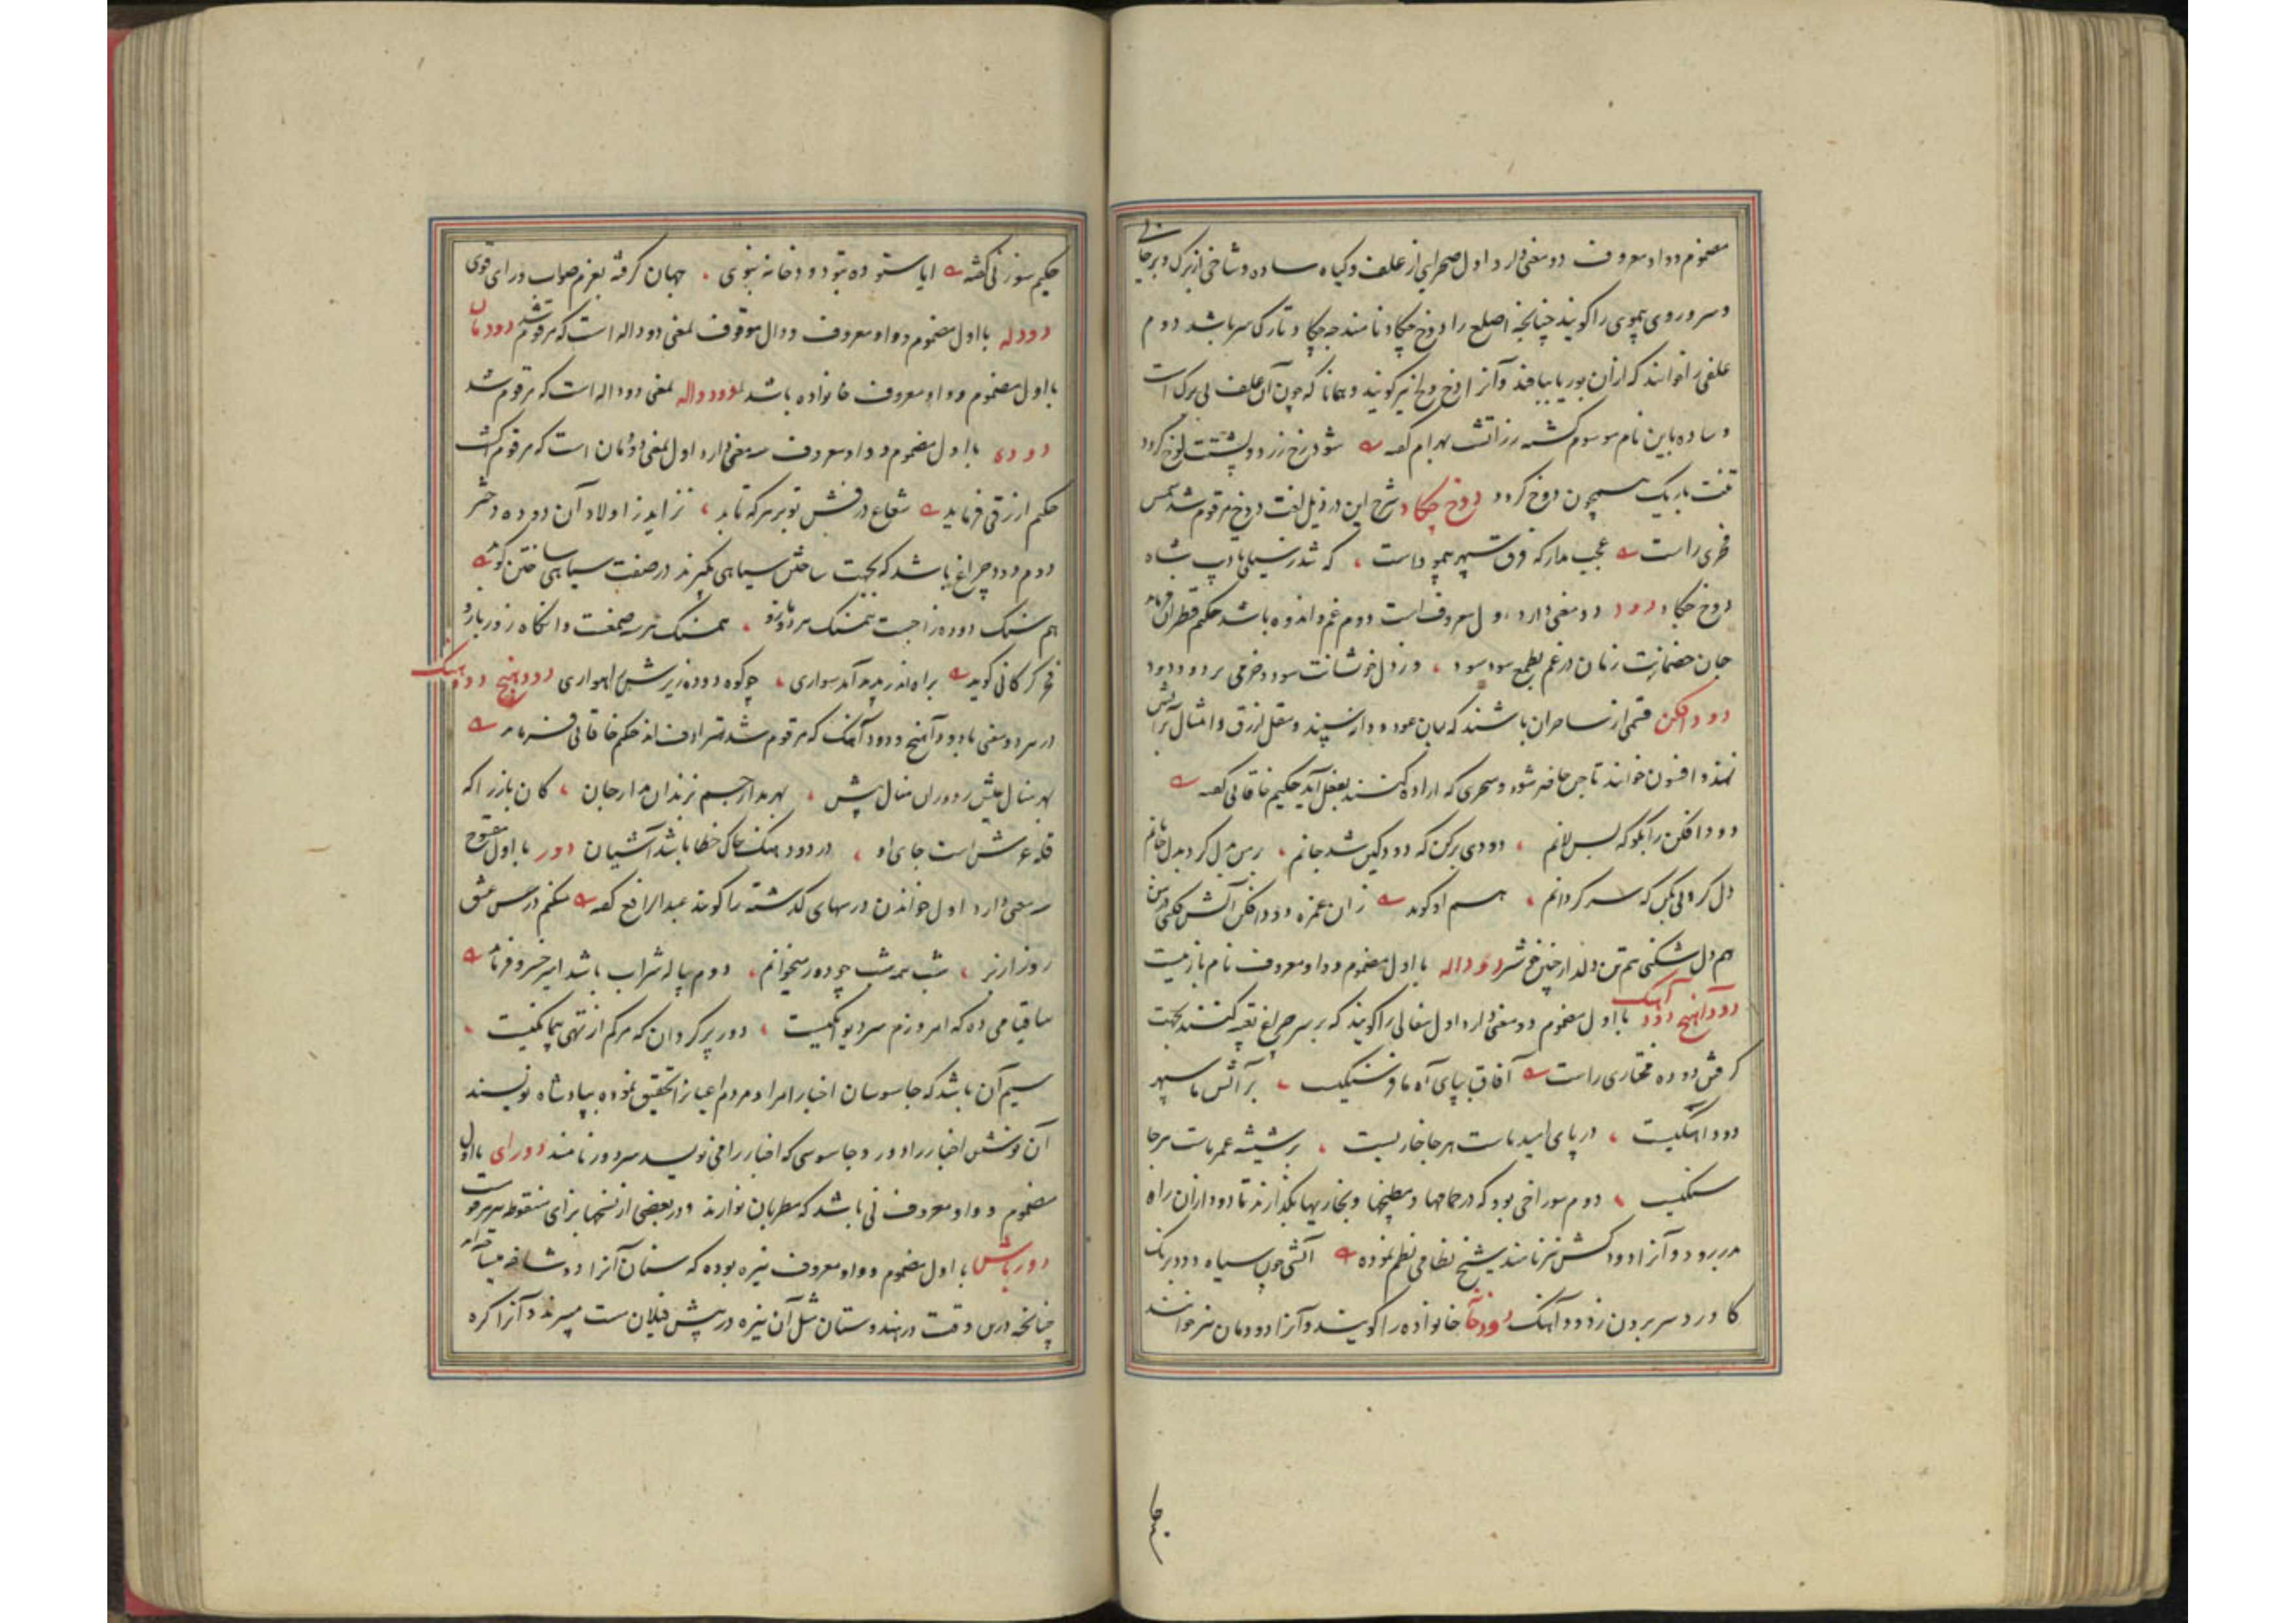 مضموم و واو معروف دو معنی دارد اول صحرایی از علف و گیاه ساده و شاخی از برگ و بر جای
و سر و روی بی‌موی را گویند چنانچه اصلع را دوخ چکاد نامند چه چکاد تارک سر باشد دوم
علفی را خوانند که از آن بوریا ببافند و آنرا دوخ و لخ نیز گویند و همانا که چون آن علف بی برگ است
و ساده باین نام موسوم گشته زراتشت بهرام گفته شود رخ زرد و پشتت لوخ گردد
تنت باریک همچون دوخ گردد دوخ چکاد شرح این در ذیل لغت دوخ مرقوم شد شمس
فخری راست عجب مدار که فرق سپهر بی‌مو داست که شد ز سیلی پادشاه
دوخ چکاد دود دو معنی دارد اول معروفست دوم غم و اندوه باشد حکیم قطران فرماید
جان خصمانت زمان در غم بطمع سود سود وز دل خوشانت سود و خرمی بردود دود
دود افکن قسمی از ساحران باشند که بان عود و دارسپند و مقل ازرق و امثال آن بر آتش
نهند و افسون خوانند تا جن حاضر شود و سحری که اراده کنند بفعل آید حکیم خاقانی گفته
دود افکن را بگو که بس لانم دودی برکن که دودگین شد جانم
دل گردی بکن که سر گردانم هم او گوید زان غمزه دود افکن آتش فکنی در من
هم دل شکنی هم تن دودآله با اول مضموم و واو معروف نام بازیست
دود آهنج دود آهنگ با اول مضموم دو معنی دارد اول سفالی را گویند که بر سر چراغ تعبیه کنند بجهت
گرفتن دوده مختاری راست آفاق بپای آه ما فرسنگیست بر آتش ما سپهر
دود آهنگیست در پای امید ماست هر جا خاریست بر شیشه عمر ماست هر جا
سنگیست دوم سوراخی بود که در حمامها و مطبخها و بخاریها بگذارند تا دود از آن راه
بدر رود و آنرا دودکش نیز نامند شیخ نظامی نظم نموده آتشی چون سیاه دود برنگ
کاورد سر برون ز دود آهنگ دودخانه خانواده را گویند و آنرا دودمان نیز خوانند
حکیم سوزنی گفته ایا ستوده بتو دودخانه نبوی جهان گرفته بعزم صواب و رای قوی
دودله با اول مضموم و واو معروف و دال موقوف بمعنی دوداله است که مرقوم شد دودمان
با اول مضموم و واو معروف خانواده باشد دودواله بمعنی دوداله است که مرقوم شد
دوده با اول مضموم و واو معروف سه معنی دارد اول بمعنی دودمان است که مرقوم گشت
حکیم ازرقی فرماید شعاع درفش تو بر هر که تابد نزاید ز اولاد آن دوده دختر
دوم دود چراغ باشد که بجهت ساختن سیاهی بگیرند در صفت سیاهی ساختن گوید
هم سنگ دوده زاج است همسنگ هر دو مازو همسنگ هر سه صمغست وانگاه زور بازو
فخر گرگانی گوید براه اندر پدید آمد سواری چو کوه دوده زیرش راهواری دودهنج دودهنگ
در هر دو معنی با دود آهنج و دود آهنگ که مرقوم شد مترادف اند حکیم خاقانی فرماید
کان باز را که
قله عرش است جای او در دود هنگ خاک خطا باشد آشیان دور با اول مفتوح
سه معنی دارد اول خواندن درسهای گذشته را گویند عبدالرافع گفته میکنم درس عشق
روز از بر شب همه شب چو دور میخوانم دوم پیاله شراب باشد امیر خسرو فرماید
ساقیا می ده که امروزم سر دیوانگیست دور پر گردان که مرگم از تهی پیمانگیست
سیم آن باشد که جاسوسان اخبار امرا و مردم اعیان را تحقیق نموده بپادشاه نویسند
آن نوشتن اخبار را دور و جاسوسی که اخبار را می‌نویسد سردور نامند دورای با اول
مضموم و واو معروف نی باشد که مطربان نوازند و در بعضی از نسخها بزای منقوطه مرقومست
دورباش با اول مضموم و واو معروف نیزه بوده که سنان آنرا دو شاخه میساخته‌اند
چنانچه درین وقت در هندوستان مثل آن نیزه در پیش فیلان مست میبرند و آنرا کره